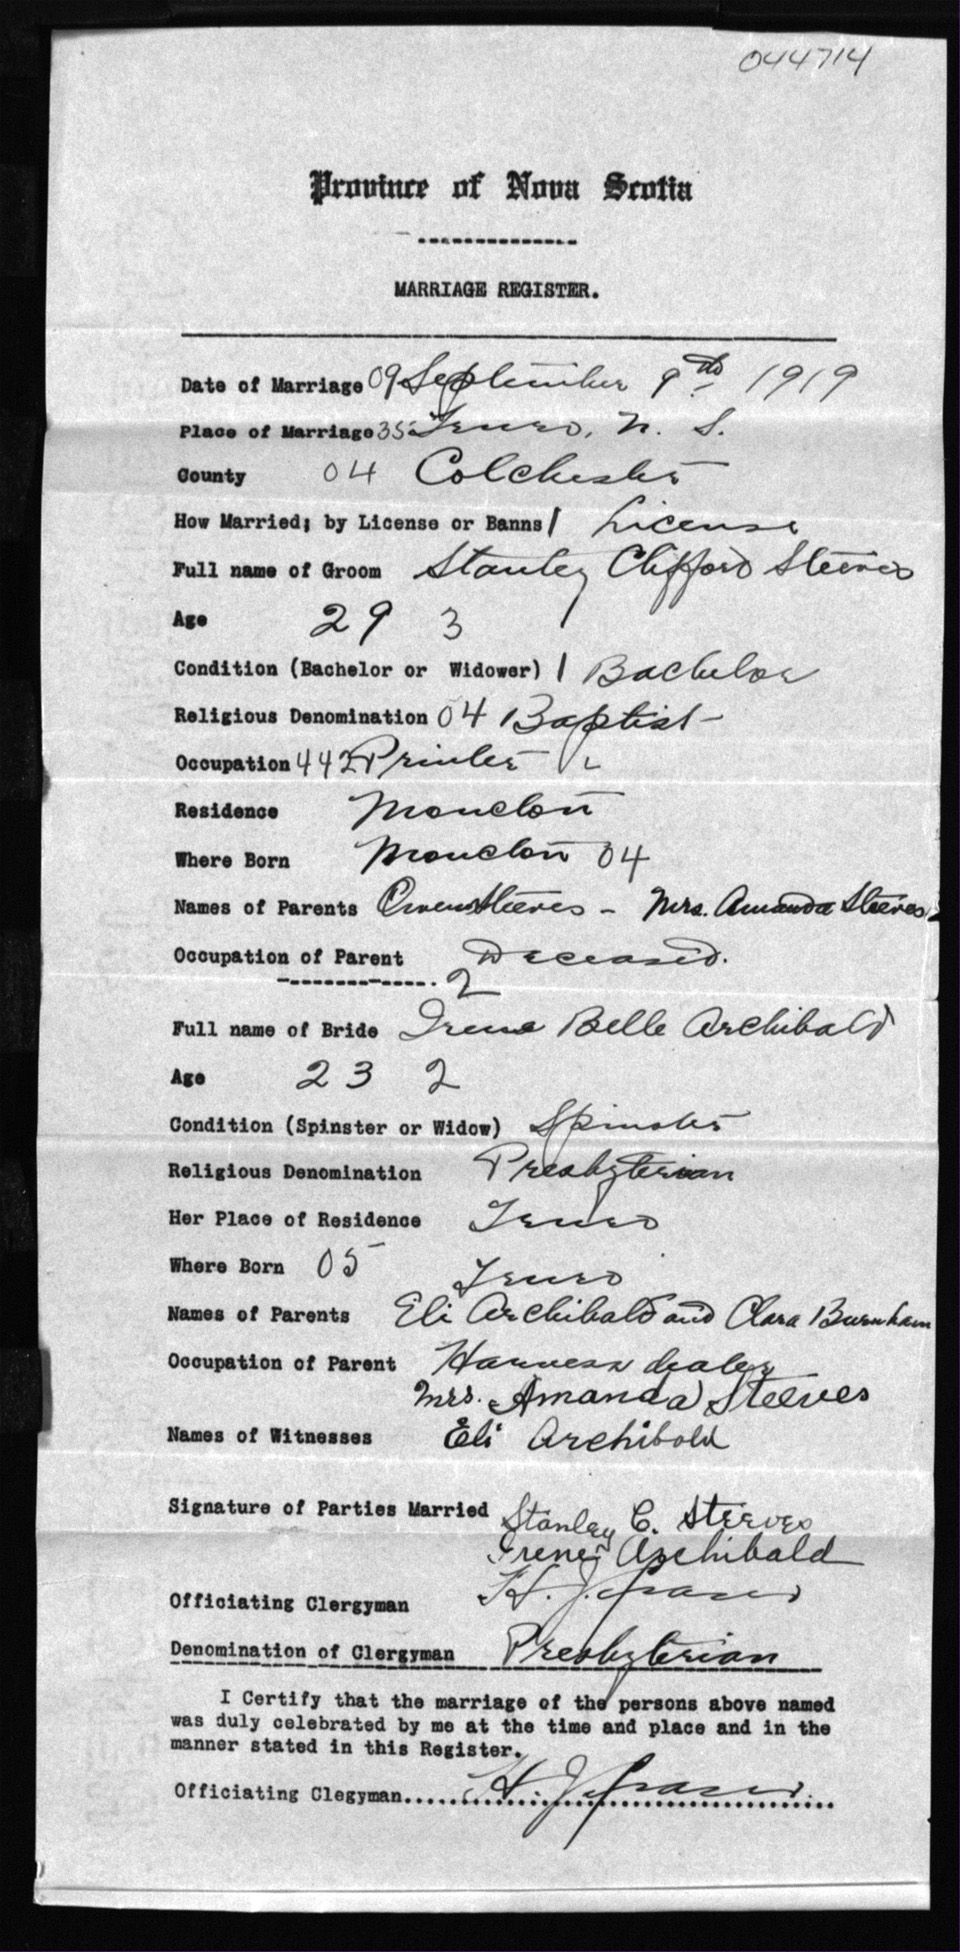 044714
Province of Nova Scotia
MARRIAGE REGISTER.
Date of Marriage 09 September 9th 1919
Place of Marriage 35 Truro, N. S.
County 04 Colchester
How Married; by License or Banns 1 License
Full name of Groom Stanley Clifford Steeves
Age 29 3
Condition (Bachelor or Widower) 1 Bachelor
Religious Denomination 04 Baptist
Occupation 442 Printer
Residence Moncton
Where Born Moncton 04
Names of Parents Owen Steeves - Mrs. Amanda Steeves
Occupation of Parent Deceased.
2
Full name of Bride Irene Belle Archibald
Age 23 2
Condition (Spinster or Widow) Spinster
Religious Denomination Presbyterian
Her Place of Residence Truro
Where Born 05 Truro
Names of Parents Eli Archibald and Clara Burnham
Occupation of Parent Harness dealer
Mrs. Amanda Steeves
Names of Witnesses Eli Archibald
Signature of Parties Married Stanley C. Steeves
Irene Archibald
Officiating Clergyman H. J. Fraser
Denomination of Clergyman Presbyterian
I Certify that the marriage of the persons above named
was duly celebrated by me at the time and place and in the
manner stated in this Register.
Officiating Clegyman.....H. J. Fraser